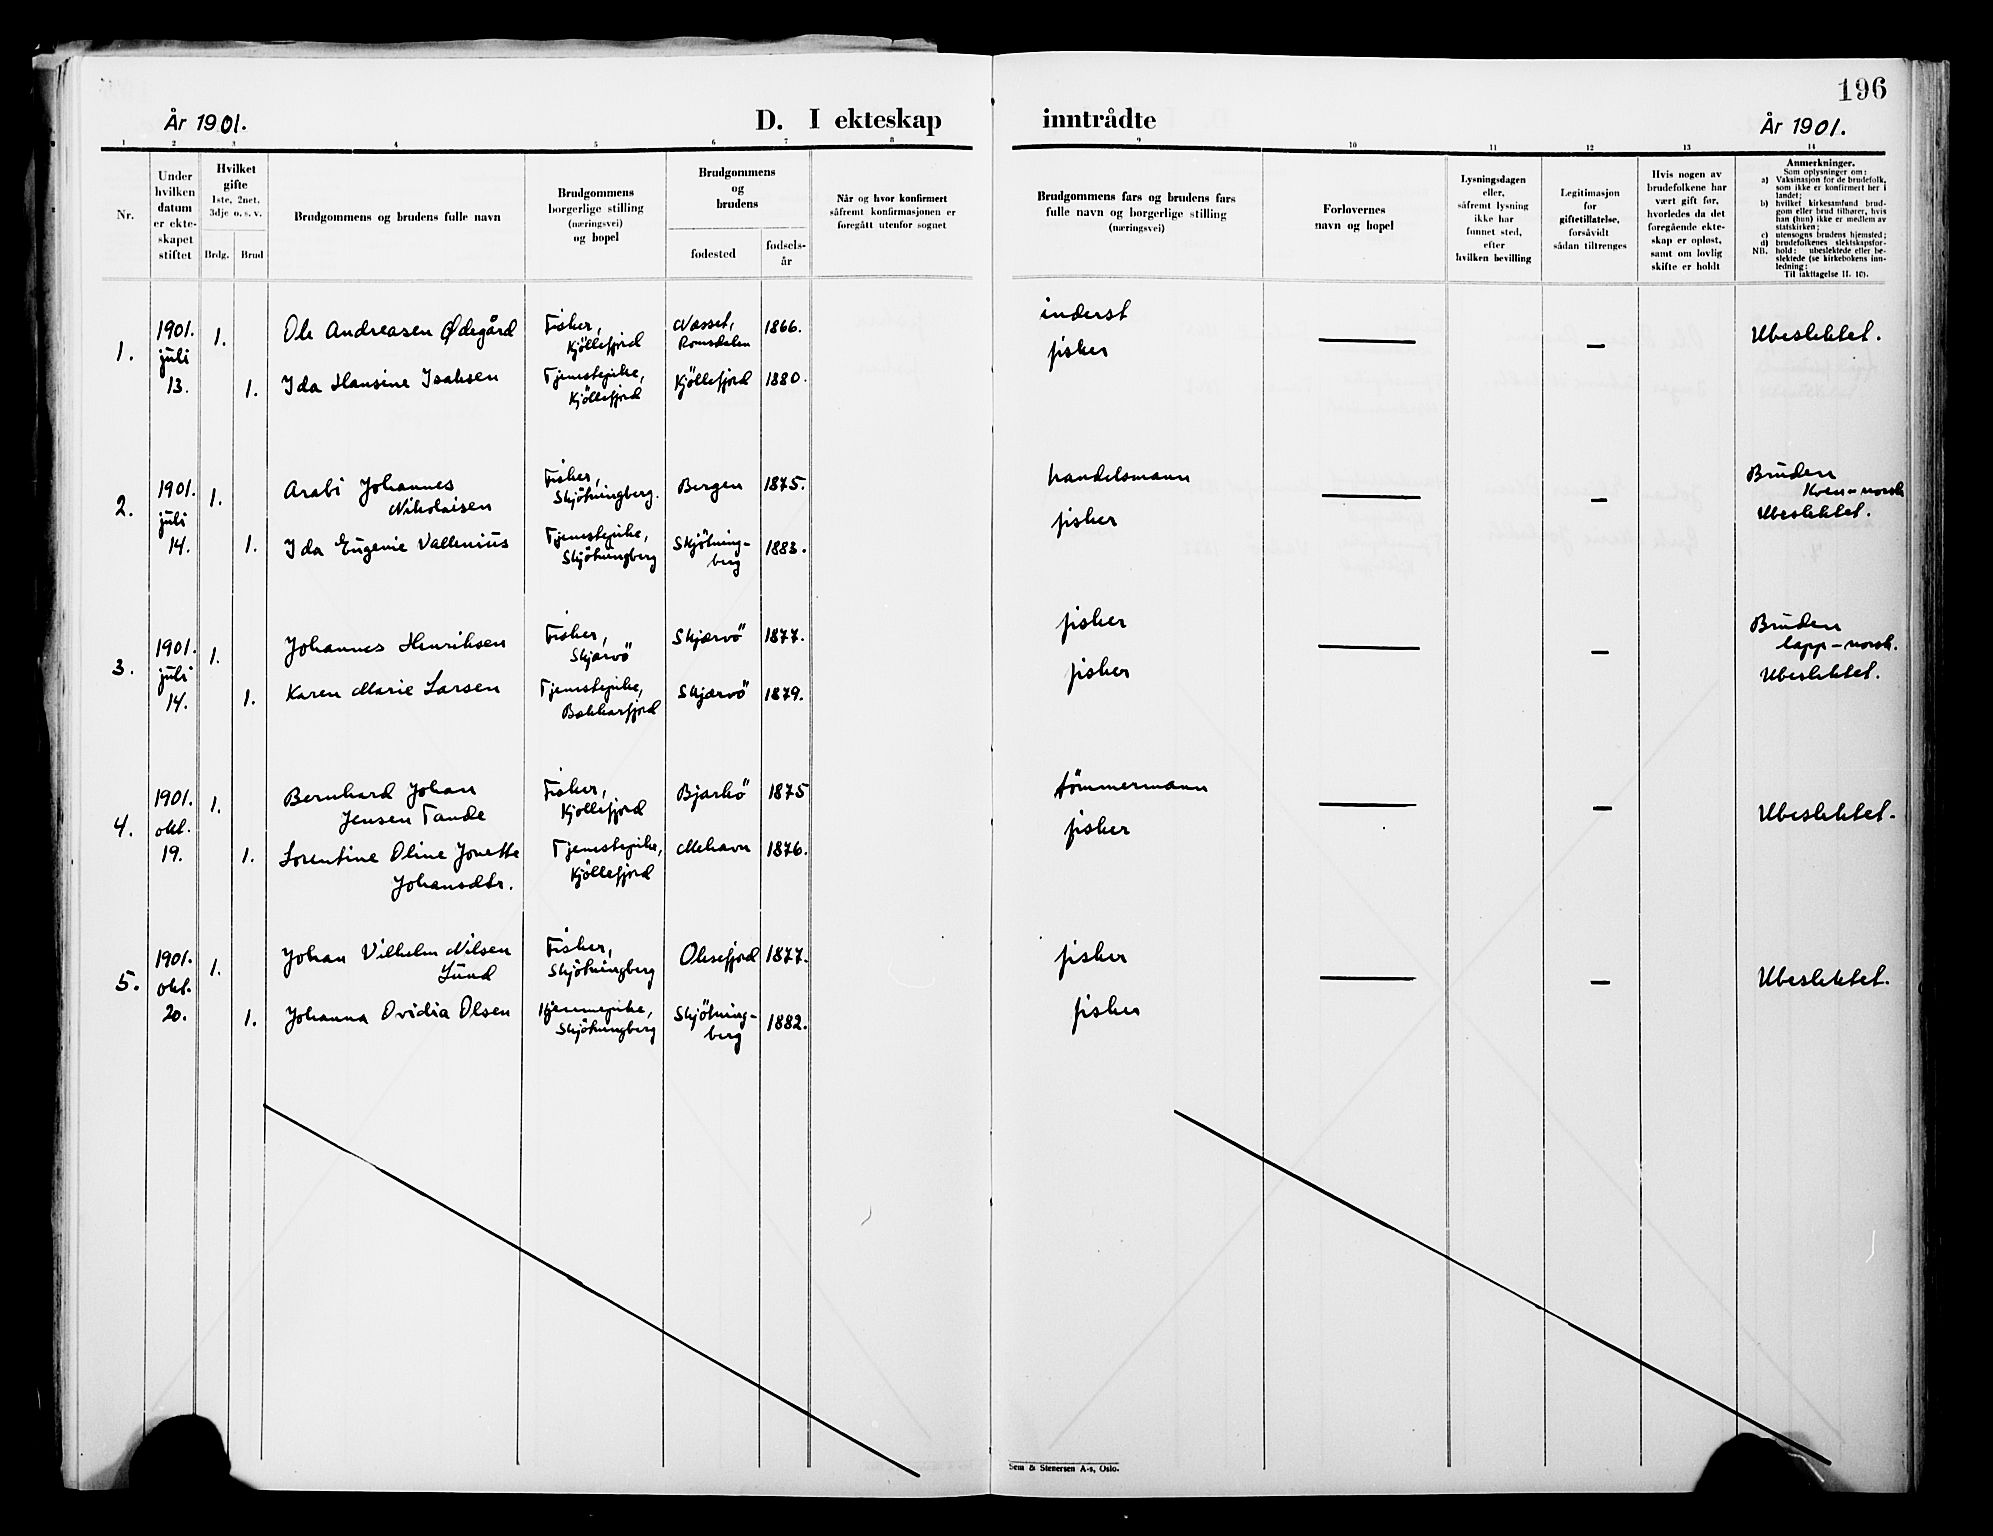 196
År 1901.
D. I ekteskap
inntrådte
År 1901.
1 2 3 4 5 6 7 8 9 10 11 12 13 14
Nr.
Under
hvilken
datum
er ekte-
skapet
stiftet
Hvilket
gifte
1ste, 2net,
3dje o. s. v.
Brdg. Brud
Brudgommens og brudens fulle navn
Brudgommens
borgerlige stilling
(næringsvei)
og bopel
Brudgommens
og
brudens
fødested
fødsels-
år
Når og hvor konfirmert
såfremt konfirmasjonen er
foregått utenfor sognet
Brudgommens fars og brudens fars
fulle navn og borgerlige stilling
(næringsvei)
Forlovernes
navn og bopel
Lysningsdagen
eller,
såfremt lysning
ikke har
funnet sted,
efter
hvilken bevilling
Legitimasjon
for
giftetillatelse,
forsåvidt
sådan tiltrenges
Hvis nogen av
brudefolkene har
vært gift før,
hvorledes da det
foregående ekte-
skap er opløst,
samt om lovlig
skifte er holdt
Anmerkninger.
Som oplysninger om:
a) Vaksinasjon for de brudefolk,
som ikke er konfirmert her i
landet;
b) hvilket kirkesamfund brud-
gom eller brud tilhører, hvis
han (hun) ikke er medlem av
statskirken;
c) utensogns brudens hjemsted;
d) brudefolkenes slektskapsfor-
hold: ubeslektede eller be-
slektede (se kirkebokens inn-
ledning:
NB. Til iakttagelse II. 10).
1.
1901.
juli
13.
1.
Ole Andreasen Ødegård
Fisker,
Kjöllefjord
Næsset,
Romsdalen
1866.
inderst
Ubeslektet.
1.
Ida Hansine Isaksen
Tjenestepike,
Kjöllefjord
Kjöllefjord
1880.
fisker
2.
1901.
juli
14.
1.
Arabi Johannes
Nikolaisen
Fisker,
Skjötningberg.
Bergen
1875.
handelsmann
Bruden
Kven-norsk
Ubeslektet.
1.
Ida Eugenie Vallenius
Tjenestepike,
Skjötningberg
Skjötning-
berg
1883.
fisker
3.
1901.
juli
14.
1.
Johannes Henriksen
Fisker,
Skjærvö
Skjærvö
1877.
fisker
Bruden
lapp-norsk.
Ubeslektet.
1.
Karen Marie Larsen
Tjenestepike,
Bakkarfjord
Skjærvö
1879.
fisker
4.
1901.
okt.
19.
1.
Bernhard Johan
Jensen Tande
Fisker,
Kjöllefjord
Bjarkö
1875
tömmermann
Ubeslektet.
1.
Lorentine Oline Jonette
Johansdtr.
Tjenestepike,
Kjöllefjord
Mehavn
1876.
fisker
5.
1901.
okt.
20.
1.
Johan Vilhelm Nilsen
Lund
Fisker,
Skjötningberg
Oksefjord
1877.
fisker
Ubeslektet.
1.
Johanna Ovidia Olsen
Hjemmepike,
Skjötningberg
Skjötning-
berg
1882.
fisker
Sem & Stenersen A-s, Oslo.